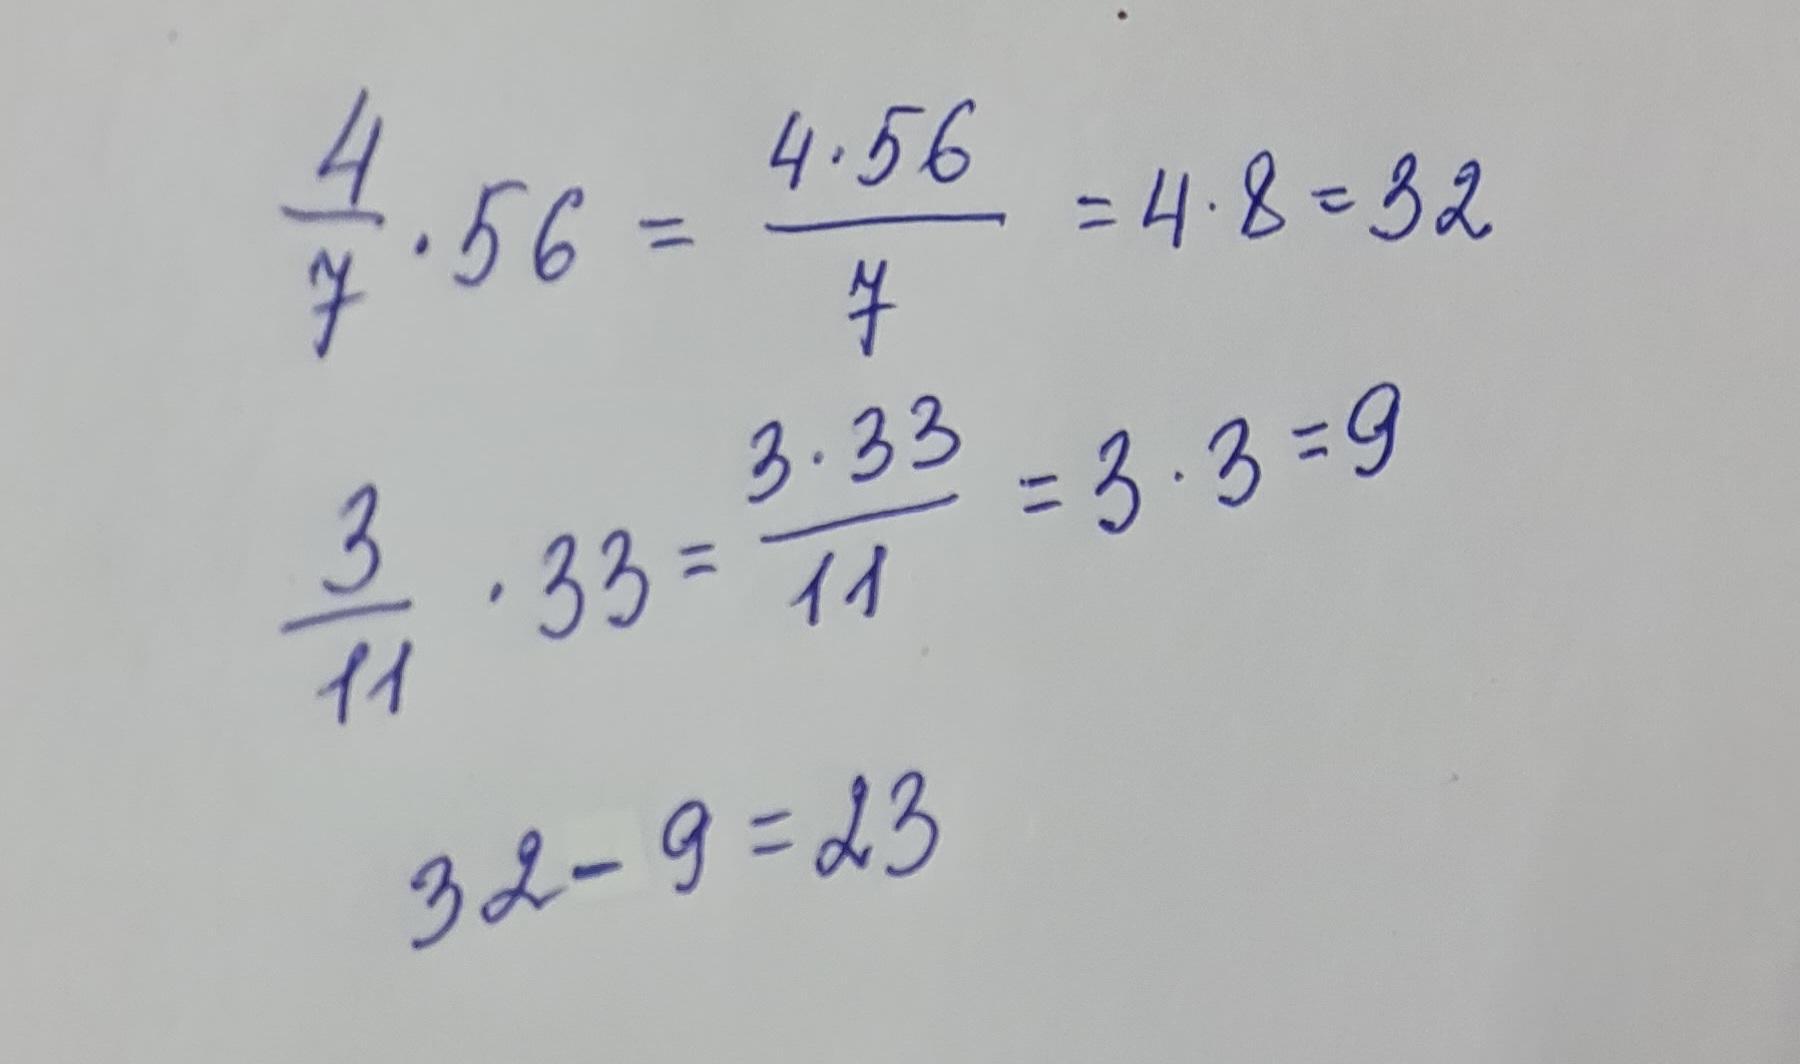 4/7 · 56 = 4·56/7 = 4·8 = 32
3/11 · 33 = 3·33/11 = 3·3 = 9
32 - 9 = 23